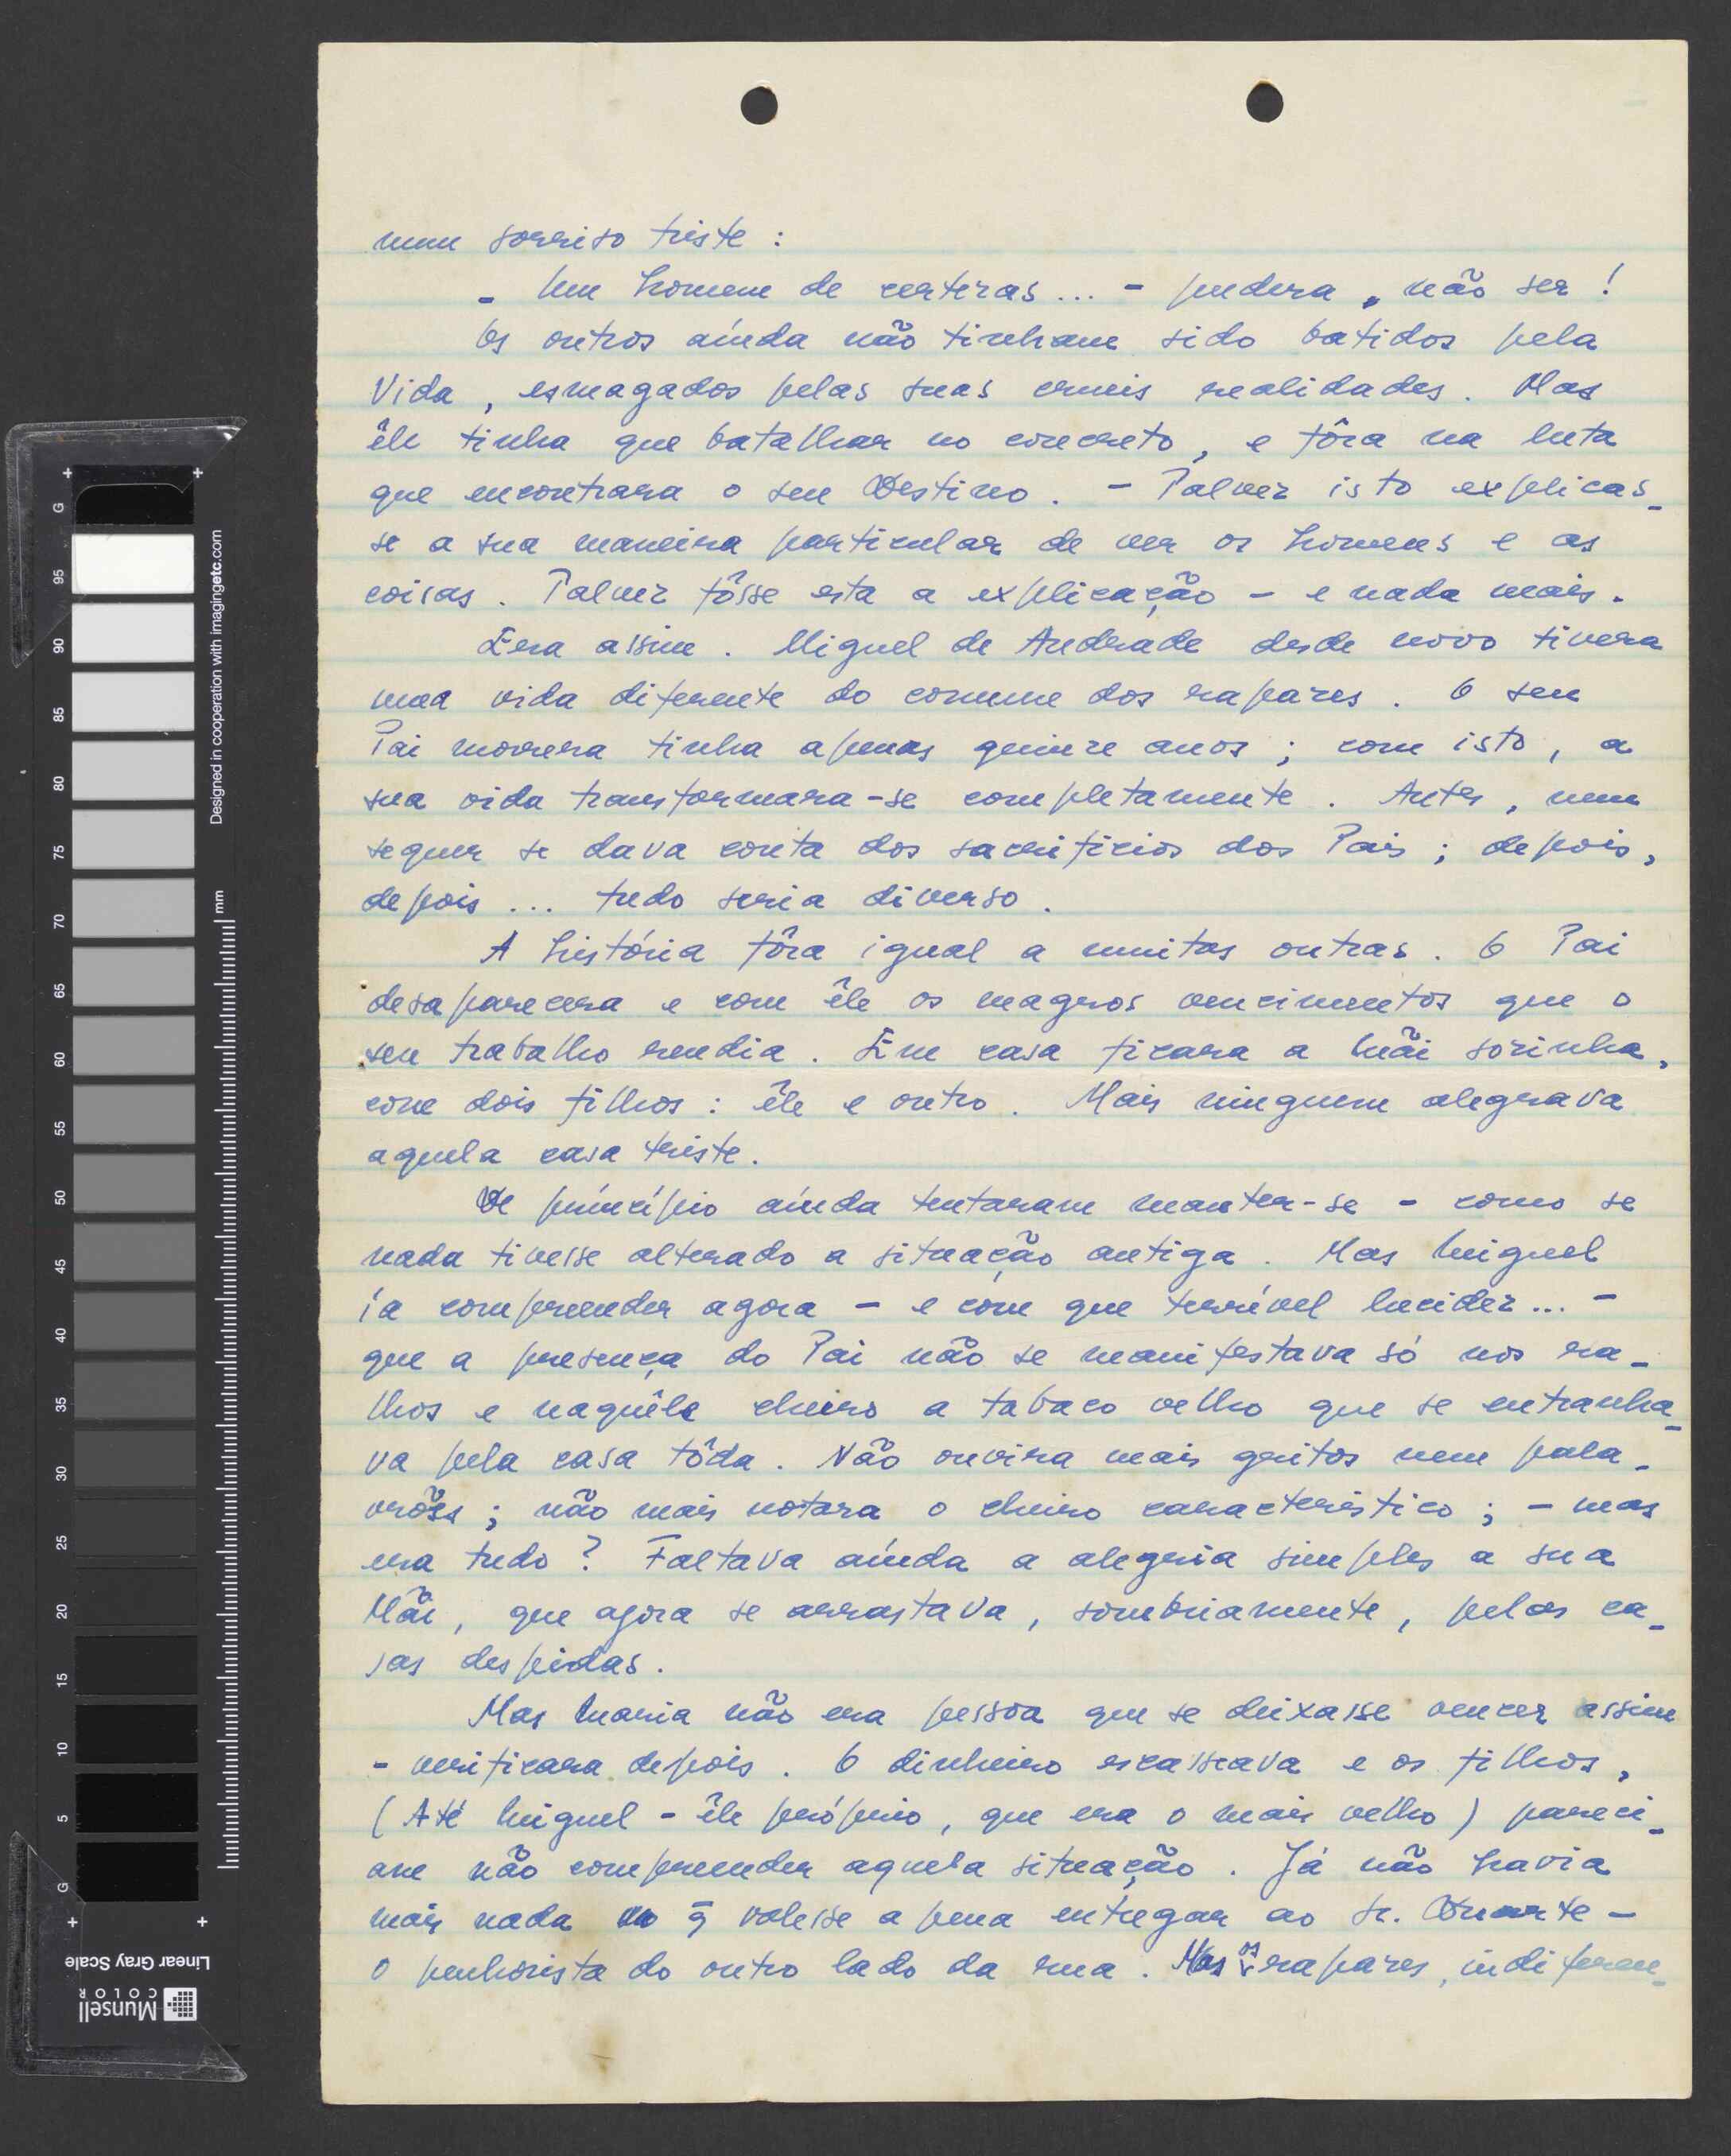 num sorriso triste :
- Um homem de certezas ... - pudera, não ser !
Os outros aínda não tinham sido batidos pela
Vida, esmagados pelas suas crueis realidades. Mas
êle tinha que batalhar no concreto, e fôra na luta
que encontrara o seu Destino. - Talvez isto explicas_
se a sua maneira particular de ver os homens e as
coisas. Talvez fôsse esta a explicação - e nada mais.
Era assim. Miguel de Andrade desde novo tivera
uma vida diferente do comum dos rapazes. O seu
Pai morrera tinha apenas quinze anos ; com isto, a
sua vida transformara-se completamente. Antes, nem
sequer se dava conta dos sacrifícios dos Pais ; depois,
depois ... tudo seria diverso.
A história fôra igual a muitas outras. O Pai
desaparecera e com êle os magros vencimentos que o
seu trabalho rendia. Em casa ficara a Mãi sozinha,
com dois filhos : êle e outro. Mais ninguem alegrava
aquela casa triste.
De princípio aínda tentaram manter-se - como se
nada tivesse alterado a situação antiga. Mas Miguel
ía compreender agora - e com que terrível lucidez ... -
que a presença do Pai não se manifestava só nos ra_
lhos e naquêle cheiro a tabaco velho que se entranha_
va pela casa tôda. Não ouvira mais gritos nem pala_
vrões ; não mais notara o cheiro característico ; - mas
era tudo ? Faltava aínda a alegria simples a sua
Mãi, que agora se arrastava, sombriamente, pelas ca_
sas despidas.
Mas Maria não era pessoa que se deixasse vencer assim
- verificara depois. O dinheiro escasseava e os filhos,
(Até Miguel - êle próprio, que era o mais velho) pareci_
am não compreender aquela situação. Já não havia
mais nada q̃ valesse a pena entregar ao sr. Duarte -
o penhorista do outro lado da rua. Mas os rapazes, indiferen_
Designed in cooperation with imagingetc.com
mm
G 95 90 85 80 75 70 65 60 55 50 45 40 35 30 25 20 15 10 5 G
Linear Gray Scale
Munsell
COLOR